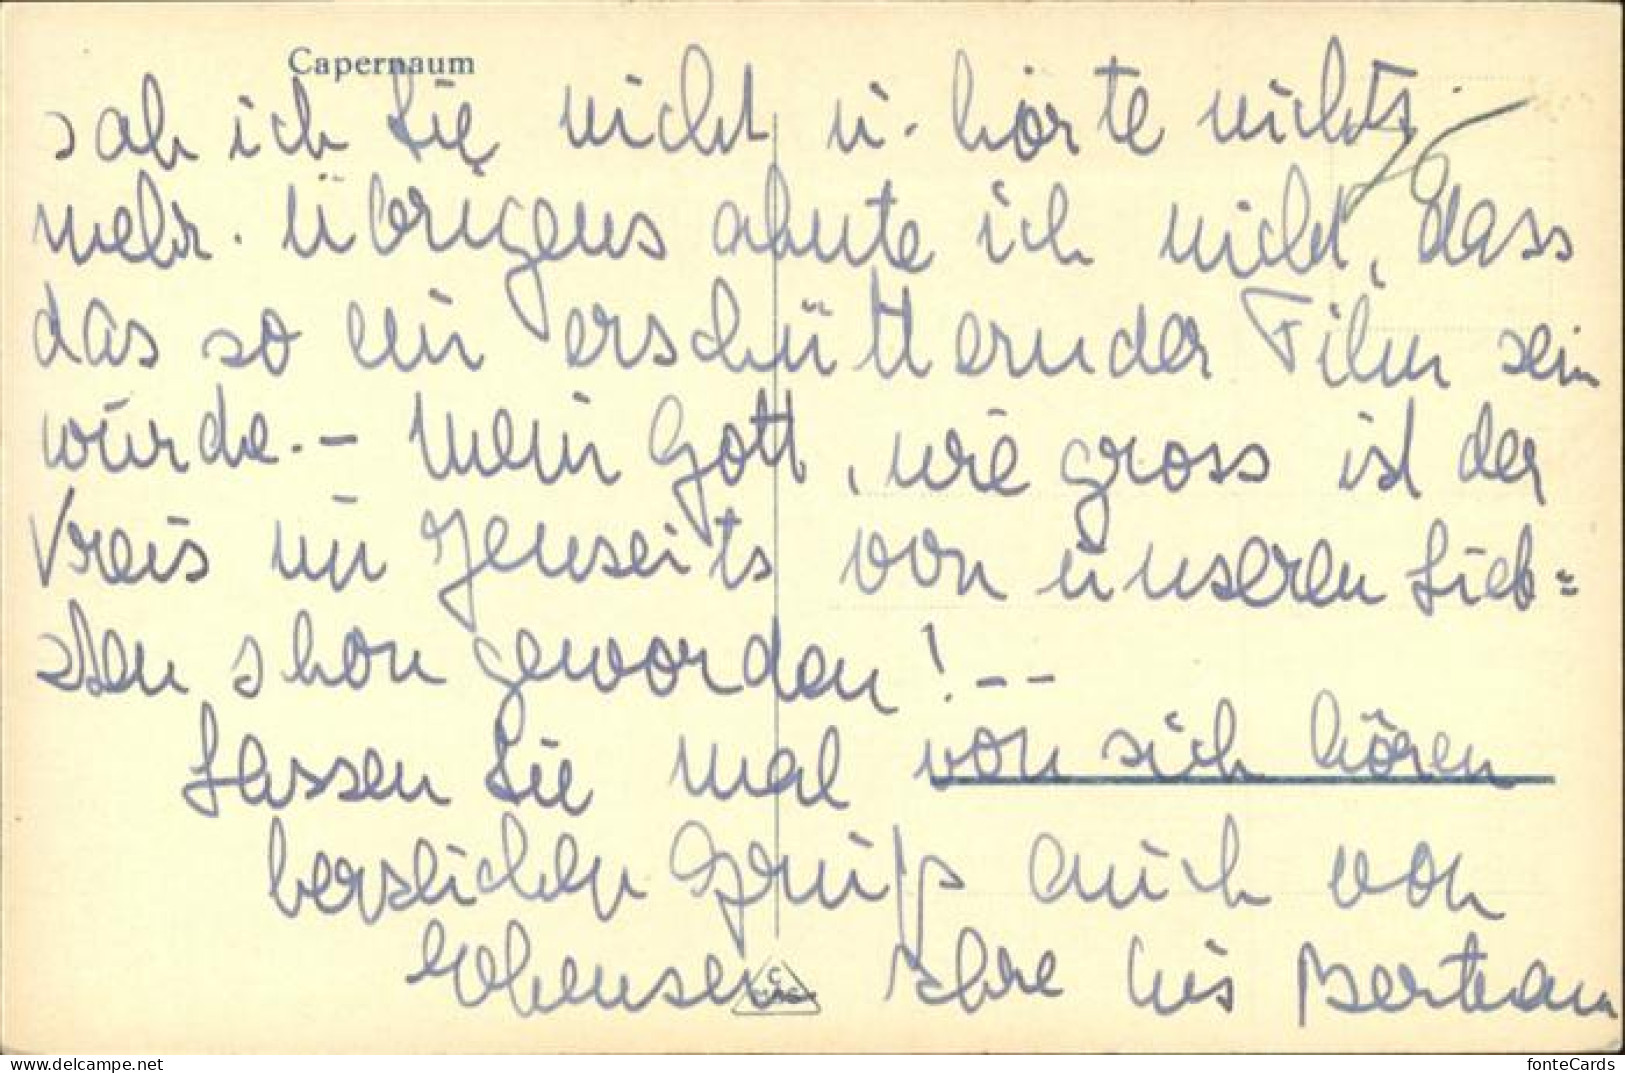 Capernaum
sah ich Sie nicht u. hörte nichts
mehr. Übrigens ahnte ich nicht, dass
das so ein erschütternder Film sein
würde. - Mein Gott, wie gross ist der
Kreis im Jenseits von unseren Lieb=
sten shon geworden! --
Lassen Sie mal von sich hören
herzlichen Gruß auch von
Ihre Lis
C
delcampe.net
fonteCards